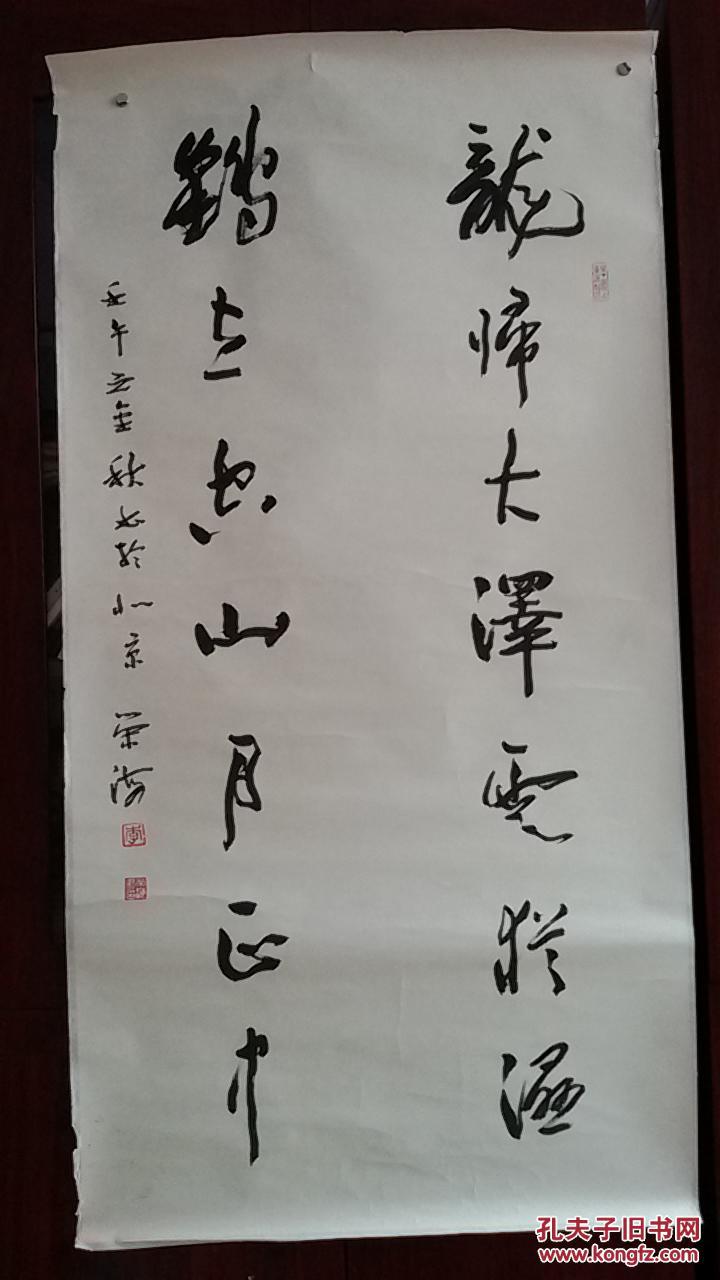 龍歸大澤雲猶濕
鶴立空山月正中
壬午之金秋書於北京 榮海
李
孔夫子旧书网
www.kongfz.com